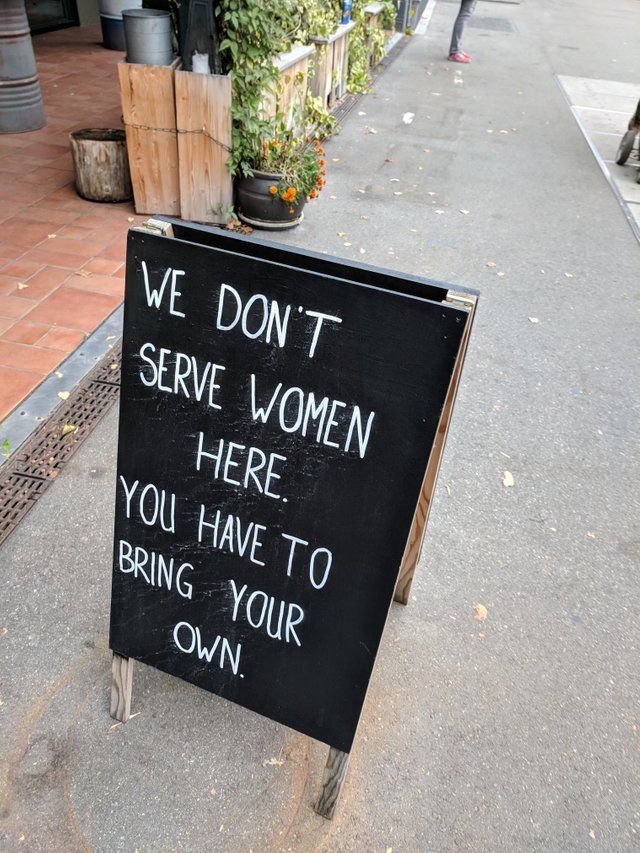 WE DON'T
SERVE WOMEN
HERE.
YOU HAVE TO
BRING YOUR
OWN.